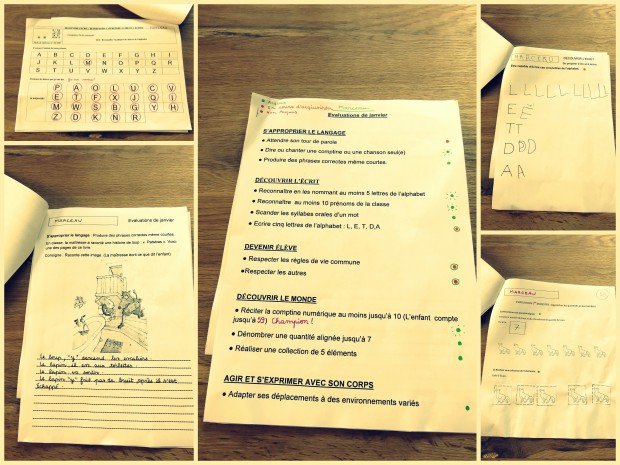 A B C D E F G H I
J K L M N O P Q R
S T U V W X Y Z
P A O L U C V
E T F X J Q I
M W S B G Y H
Z D K N R
MARCEAU
Evaluations de janvier
S'approprier le langage : Produire des phrases correctes même courtes.
En classe, la maîtresse a raconté une histoire de loup : « Patatras ». Voici
une des pages de ce livre.
Consigne : Raconte cette image. (La maîtresse écrit ce que dit l'enfant)
le loup, "y" descend les escaliers.
le lapin il est aux toilettes.
le lapin va sortir.
le lapin "y" fait pas de bruit après il s'est
échappé.
Acquis
En cours d'acquisition Marceau
Non Acquis
Evaluations de janvier
S'APPROPRIER LE LANGAGE
• Attendre son tour de parole
• Dire ou chanter une comptine ou une chanson seul(e)
• Produire des phrases correctes même courtes.
DÉCOUVRIR L'ÉCRIT
• Reconnaître en les nommant au moins 5 lettres de l'alphabet
• Reconnaître au moins 10 prénoms de la classe
• Scander les syllabes orales d'un mot
• Ecrire cinq lettres de l'alphabet : L, E, T, D,A
DEVENIR ÉLÈVE
• Respecter les règles de vie commune
•Respecter les autres
DÉCOUVRIR LE MONDE
• Réciter la comptine numérique au moins jusqu'à 10 (L'enfant compte
jusqu'à 59) Champion !
• Dénombrer une quantité alignée jusqu'à 7
• Réaliser une collection de 5 éléments
AGIR ET S'EXPRIMER AVEC SON CORPS
• Adapter ses déplacements à des environnements variés
MARCEAU
DÉCOUVRIR L'ÉCRIT
L L L L L L L L
E E
TT
D D D
A A
MARCEAU
7